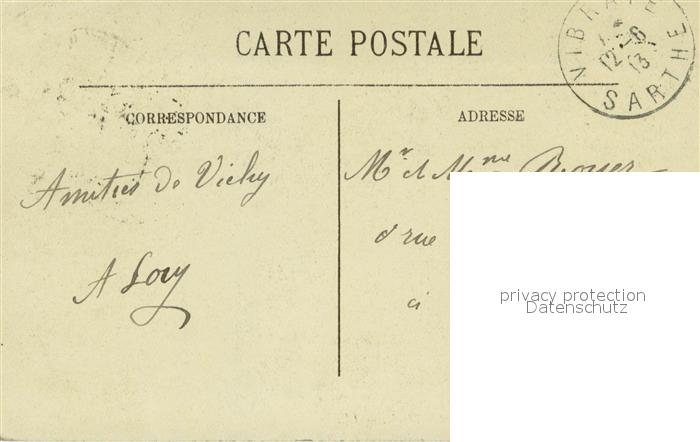 CARTE POSTALE
VIBRAYE
12-6
13
SARTHE
CORRESPONDANCE
ADRESSE
Amitiés de Vichy
A Lory
Mr et Mme Royer
rue
privacy protection
Datenschutz